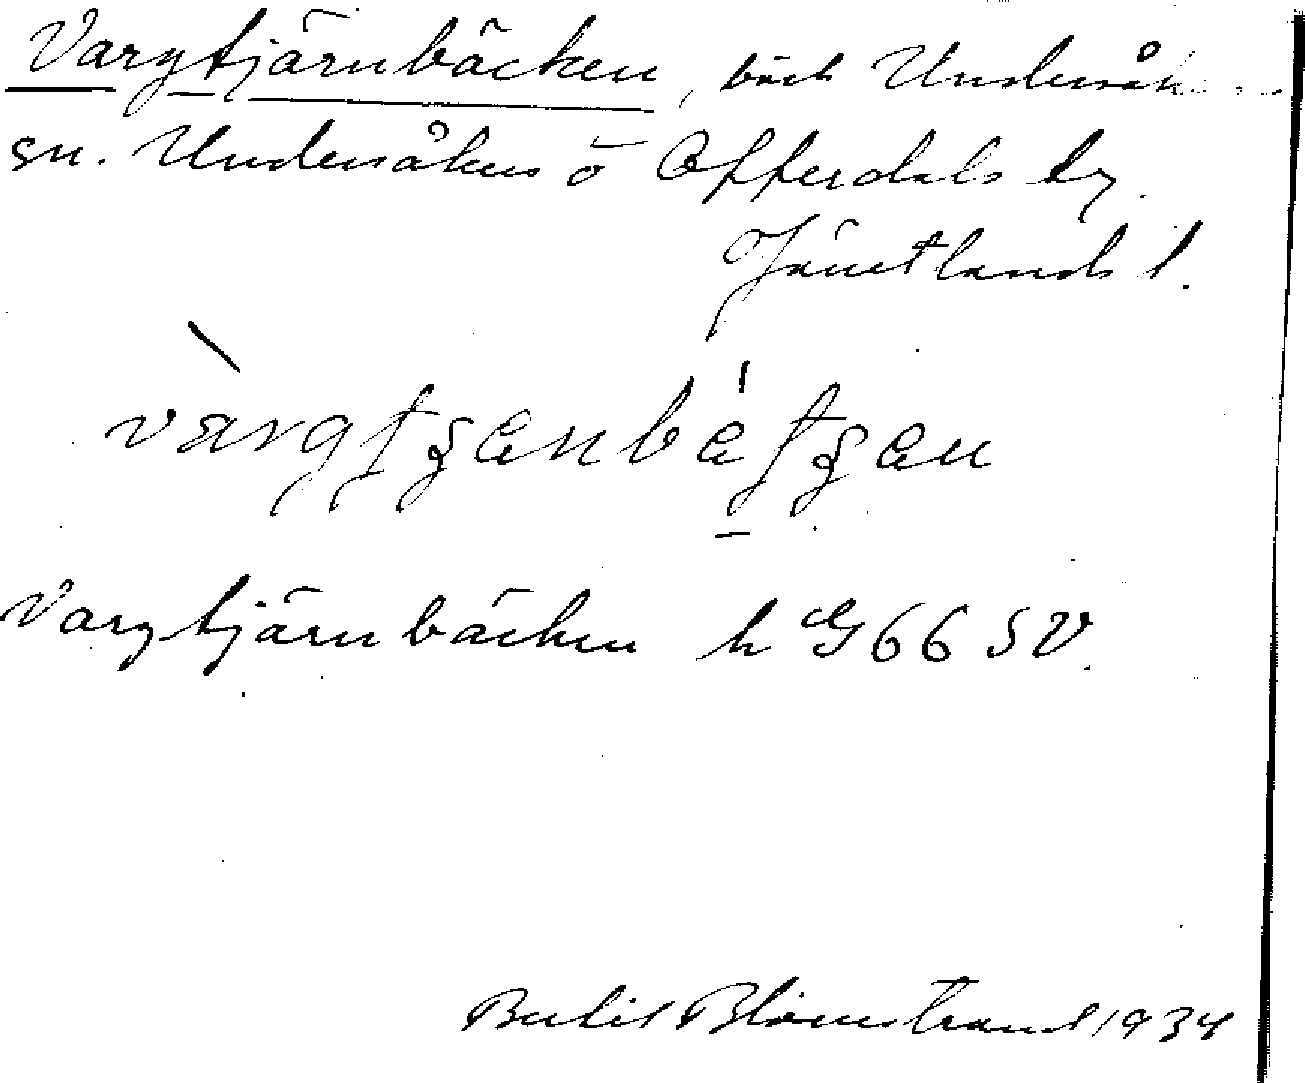 Vargtjärnbäcken, bäck Undersåk
sn. Undersåkers o Offerdals tg.
Jämtlands l.
Vargtjärnbäcken h G66 SV.
Bertil Blomstrand 1934